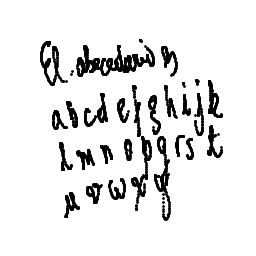 El abecedario es
a b c d e f g h i j k
l m n o p q r s t
u v w x y